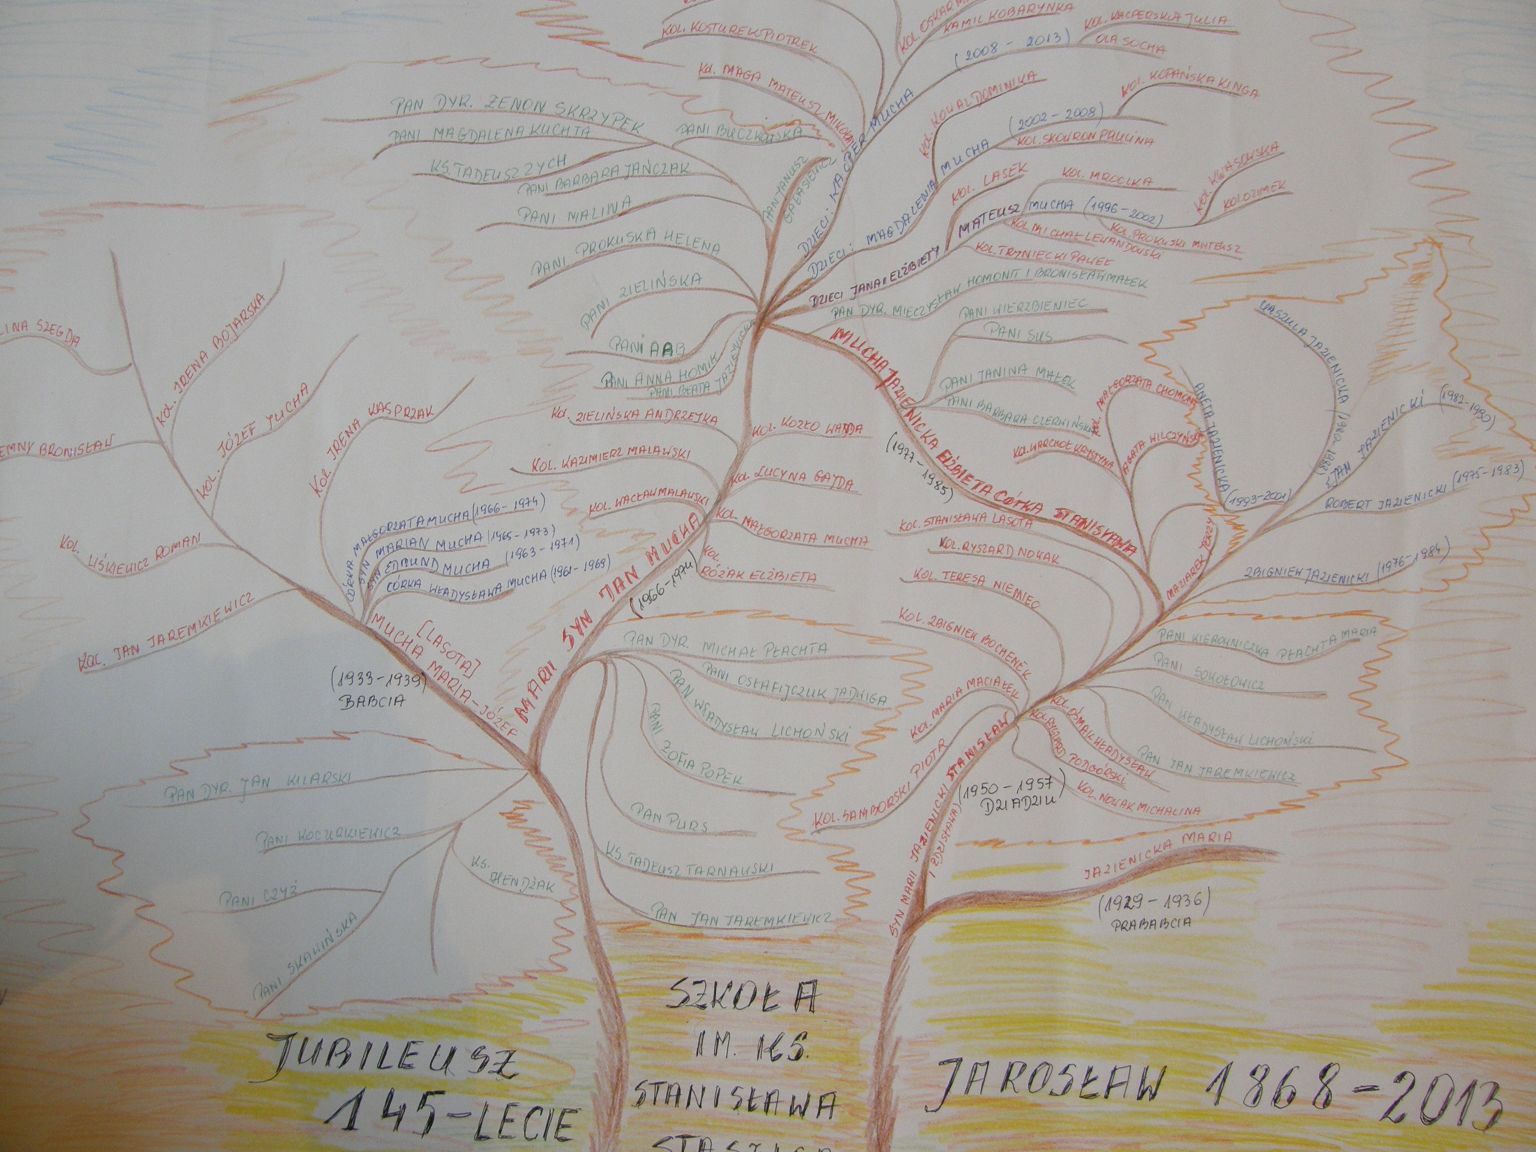 KOL. KOSTUREK PIOTREK
KAMIL KOBARYNKA
KOL. KACPERSKA JULIA
(2008 - 2013)
OLA SOCHA
KOL. MAGA MATEUSZ MIKOŁAJ
KOL. KOWAL DOMINIKA
KOL. KOPAŃSKA KINGA
PAN DYR. ZENON SKRZYPEK
PANI MAGDALENA KUCHTA
PANI BUCZKOWSKA
(2002 - 2008)
KOL. SKOWRON PAULINA
KS. TADEUSZ ZYCH
PANI BARBARA JAŃCZAK
PANI MALINA
PANI PROKUSKA HELENA
PANI ZIELIŃSKA
PAN JANUSZ
GAŁASIEWICZ
DZIECI: KACPER MUCHA
DZIECI: MAGDALENA MUCHA
DZIECI JANA I ELŻBIETY MATEUSZ MUCHA (1996-2002)
KOL. LASEK
KOL. MROCZKA
KOL. KWASOWSKA
KOL. OZIMEK
KOL. MICHAŁ LEWANDOWSKI
KOL. PROKUSKI MATEUSZ
KOL. TRYNIECKI PAWEŁ
PAN DYR. MIECZYSŁAW HOMONT I BRONISŁAW MAŁEK
PANI WIERZBIENIEC
PANI SUS
PANI JANINA MAŁEK
PANI BARBARA CZERWIŃSKA
PANI ANNA HOMIK
PANI BEATA JAZIENICKA
MUCHA JAZIENICKA ELŻBIETA CÓRKA STANISŁAWA
(1977-1985)
KOL. ZIELIŃSKA ANDRZEJKA
KOL. KAZIMIERZ MALAWSKI
KOL. WACŁAW MALAWSKI
KOL. KOZŁO WANDA
KOL. LUCYNA GAJDA
KOL. MAŁGORZATA MUCHA
KOL.
RÓŻAK ELŻBIETA
MARII SYN JAN MUCHA
(1966-1974)
LINA SZEGDA
KOL. IRENA BOJARSKA
KOL. JÓZEF MUCHA
KOL. IRENA KASPRZAK
EMNY BRONISŁAW
KOL. LIŚKIEWICZ ROMAN
KOL. JAN JAREMKIEWICZ
CÓRKA MAŁGORZATA MUCHA (1966-1974)
SYN MARIAN MUCHA (1965-1973)
SYN EDMUND MUCHA (1963-1971)
CÓRKA WŁADYSŁAWA MUCHA (1961-1969)
[LASOTA]
MUCHA MARIA-JÓZEF
(1933-1939)
BABCIA
KOL. MAŁGORZATA CHOMONT
KOL. WARCHOŁ KRYSTYNA
AGATA WILCZYŃSKA
ANETA JAZIENICKA (1993-2001)
URSZULA JAZIENICKA
JAN JAZIENICKI (1982-1990)
ROBERT JAZIENICKI (1975-1983)
ZBIGNIEW JAZIENICKI (1976-1984)
MAZIAREK JERZY
KOL. STANISŁAWA LASOTA
KOL. RYSZARD NOWAK
KOL. TERESA NIEMIEC
KOL. ZBIGNIEW BOCHENEK
KOL. MARIA MACIAŁEK
KOL. SAMBORSKI PIOTR
PANI KIEROWNICZKA PŁACHTA MARIA
PANI SOKOŁOWICZ
PAN WŁADYSŁAW LICHOŃSKI
PAN JAN JAREMKIEWICZ
KOL. OŚMAK WŁADYSŁAW
KOL. RYSZARD PODGÓRSKI
KOL. NOWAK MICHALINA
SYN MARII JAZIENICKI STANISŁAW
(ZDZISŁAWA)
(1950 - 1957)
DZIADZIU
JAZIENICKA MARIA
(1929-1936)
PRABABCIA
PAN DYR. MICHAŁ PŁACHTA
PANI OSTAFIJCZUK JADWIGA
PAN WŁADYSŁAW LICHOŃSKI
PANI ZOFIA POPEK
PAN PURS
KS. TADEUSZ TARNAWSKI
PAN JAN JAREMKIEWICZ
PAN DYR. JAN KILARSKI
PANI KOCURKIEWICZ
PANI CZYŻ
PANI SKAHIŃSKA
JUBILEUSZ
145-LECIE
SZKOŁA
IM. KS.
STANISŁAWA
STASZICA
JAROSŁAW 1868-2013